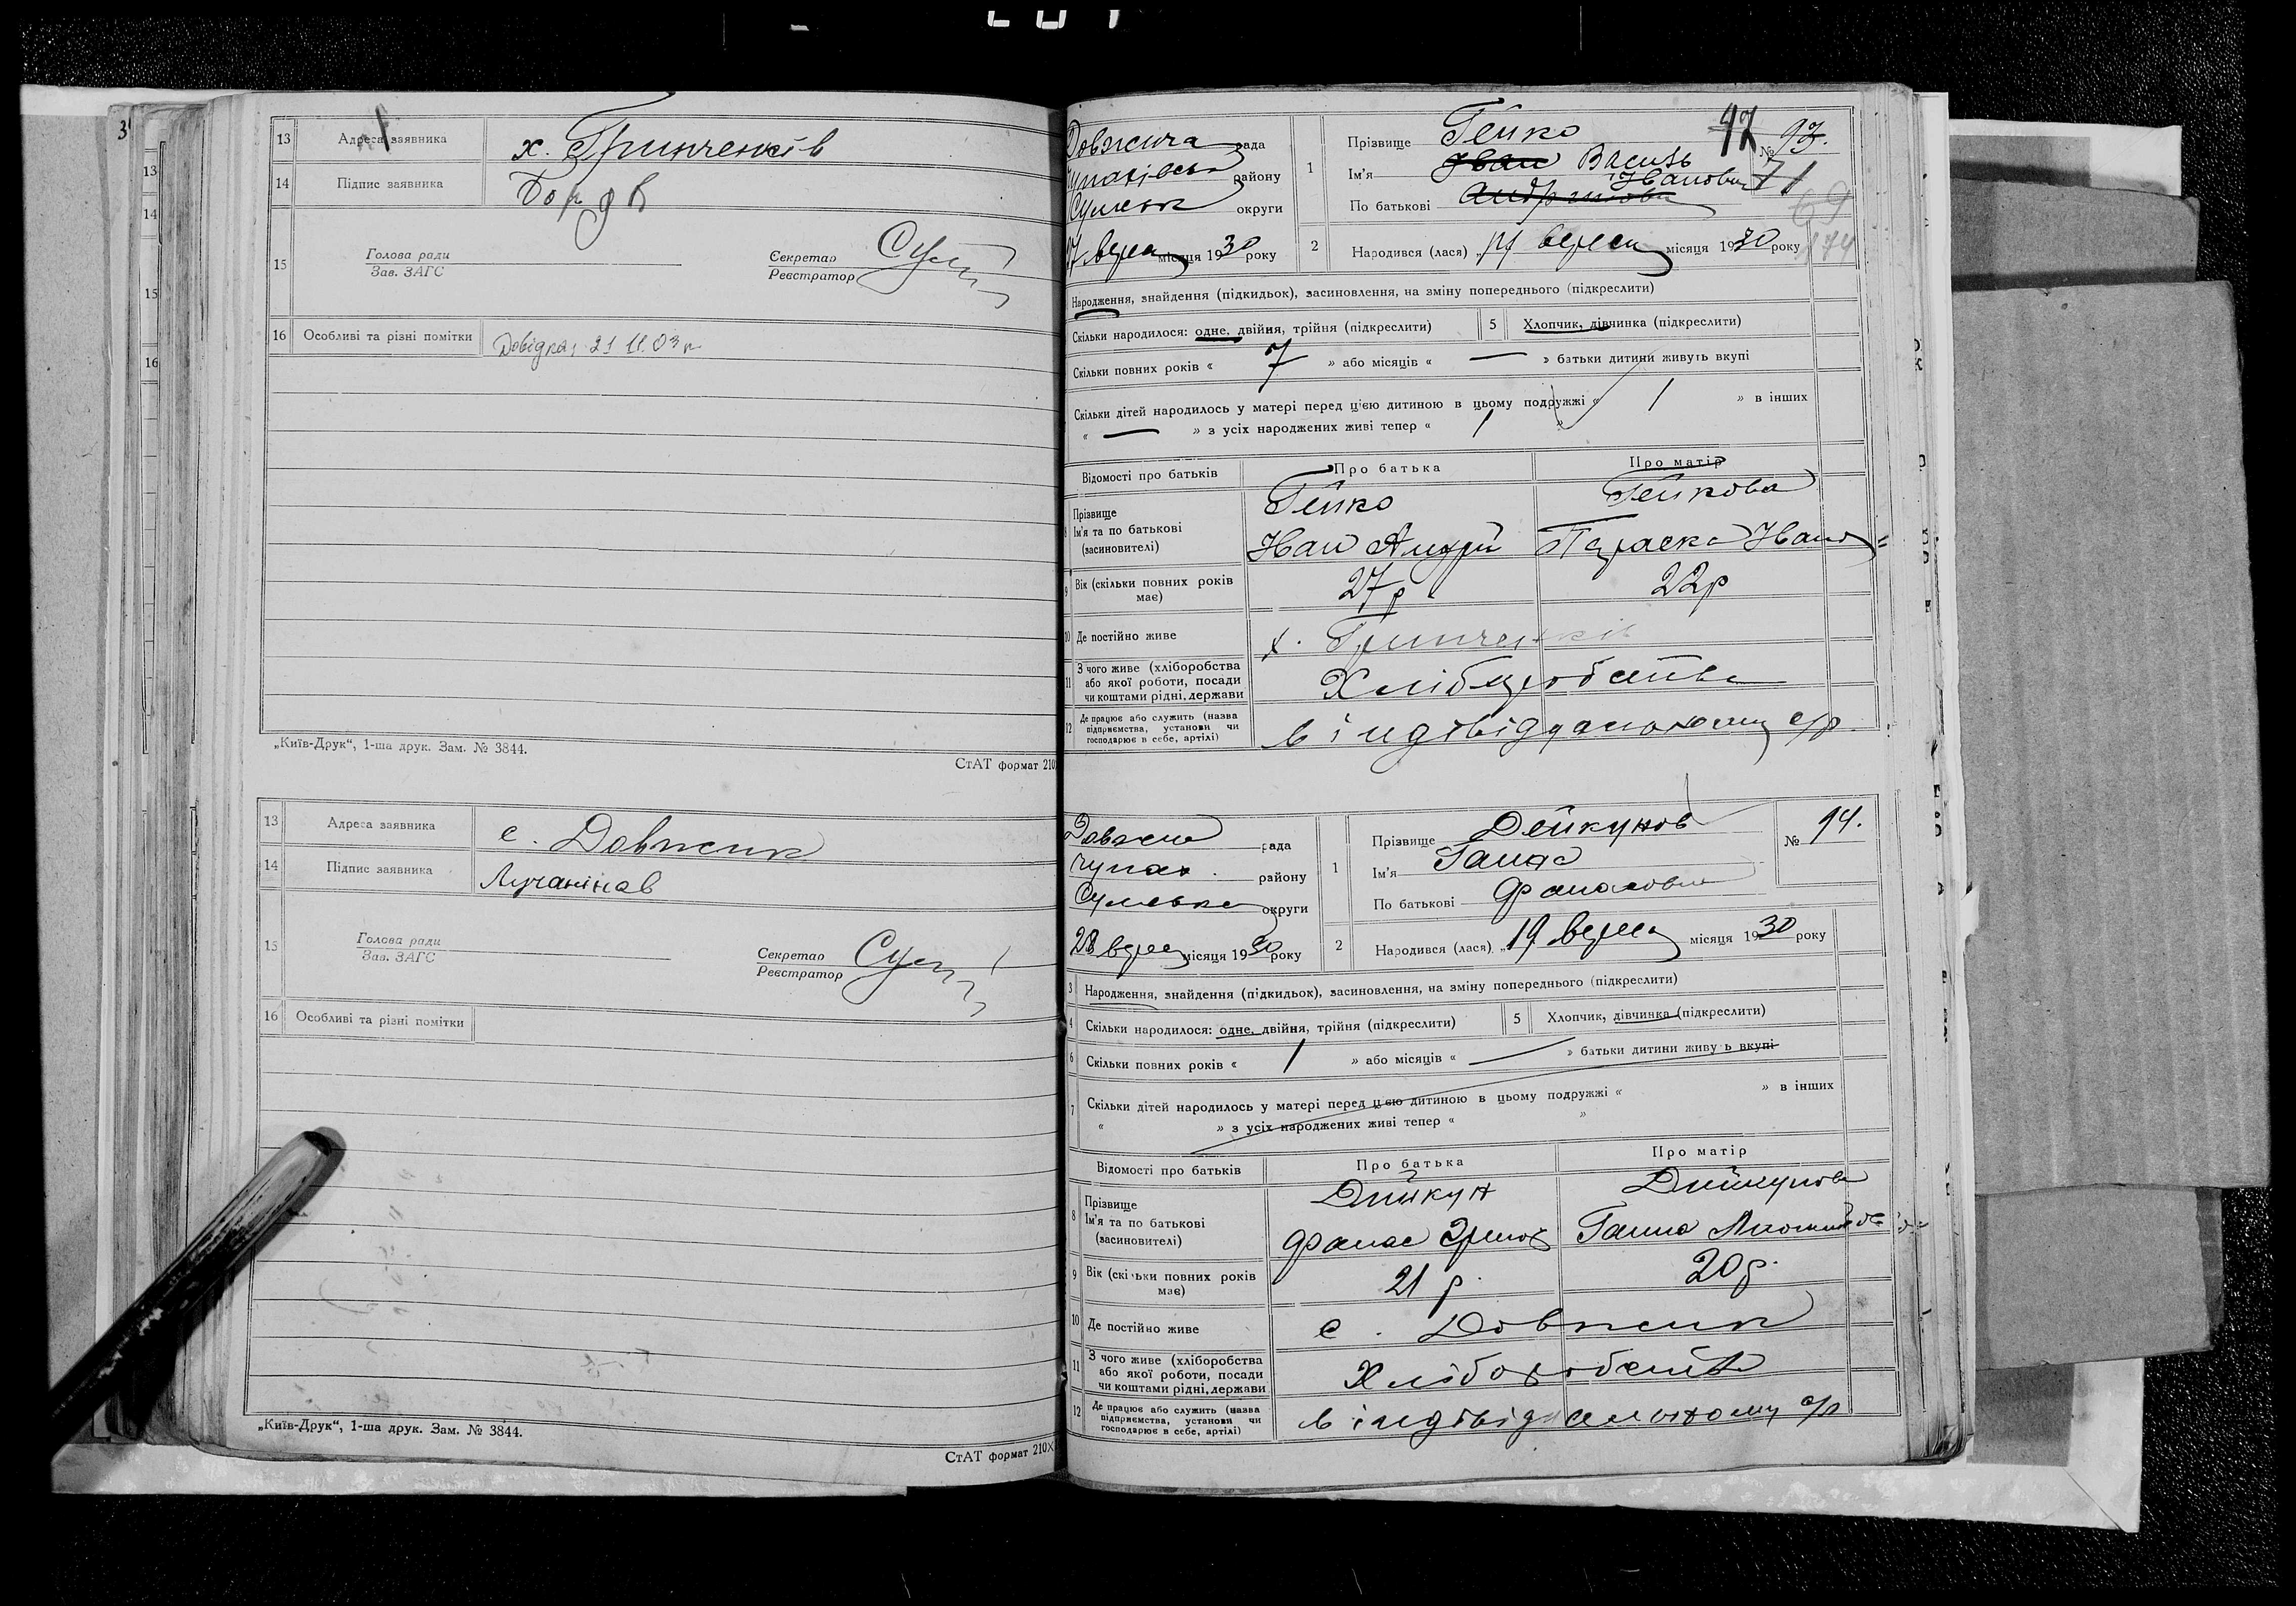 13 Адреса заявника х. Гринченків
14 Підпис заявника
15 Голова ради Секретар
Зав. ЗАГС Реєстратор
16 Особливі та різні помітки Довідка 21 11.03 р
„Київ-Друк“, 1-ша друк. Зам. № 3844.
СтАТ формат 210
13 Адреса заявника с. Довжик
14 Підпис заявника
15 Голова ради Секретар
Зав. ЗАГС Реєстратор
16 Особливі та різні помітки
„Київ-Друк“, 1-ша друк. Зам. № 3844.
СтАТ формат 210×
рада
району
округи
місяця 1930 року
1 Прізвище Гейко
Ім'я Иван Василь
По батькові Іванович
№ 93.
97
71
69
174
2 Народився (лася) „ місяця 1930 року
Народження, знайдення (підкидьок), засиновлення, на зміну попереднього (підкреслити)
Скільки народилося: одне, двійня, трійня (підкреслити) 5 Хлопчик, дівчинка (підкреслити)
Скільки повних років « 7 » або місяців « — » батьки дитини живуть вкупі
Скільки дітей народилось у матері перед цією дитиною в цьому подружжі « 1 » в інших
« — » з усіх народжених живі тепер « 1 »
Відомості про батьків Про батька Про матір
Прізвище Гейко Гейкова
8 Ім'я та по батькові
(засиновителі) Иван Андрій Параска Ивано
9 Вік (скільки повних років має) 27 р. 22р
10 Де постійно живе х. Гринченків
11 З чого живе (хліборобства
або якої роботи, посади
чи коштами рідні, держави Хліборобство
12 Де працює або служить (назва
підприємства, установи чи
господарює в себе, артілі) в індівідуальному с/г
рада
Чупах. району
Сумська округи
28 верес місяця 1930 року
1 Прізвище Дейкунов
Ім'я Ганна
По батькові
№ 94.
2 Народився (лася) „19 вересн місяця 1930 року
3 Народження, знайдення (підкидьок), засиновлення, на зміну попереднього (підкреслити)
4 Скільки народилося: одне, двійня, трійня (підкреслити) 5 Хлопчик, дівчинка (підкреслити)
6 Скільки повних років « 1 » або місяців « — » батьки дитини живуть вкупі
7 Скільки дітей народилось у матері перед цією дитиною в цьому подружжі « » в інших
« » з усіх народжених живі тепер « »
Відомості про батьків Про батька Про матір
Прізвище Дейкун Дейкунова
8 Ім'я та по батькові
(засиновителі) Фанас Ганна
9 Вік (скільки повних років має) 21 р. 20 р.
10 Де постійно живе с. Довжик
11 З чого живе (хліборобства
або якої роботи, посади
чи коштами рідні, держави Хліборобство
12 Де працює або служить (назва
підприємства, установи чи
господарює в себе, артілі) в індівідуальному с/г